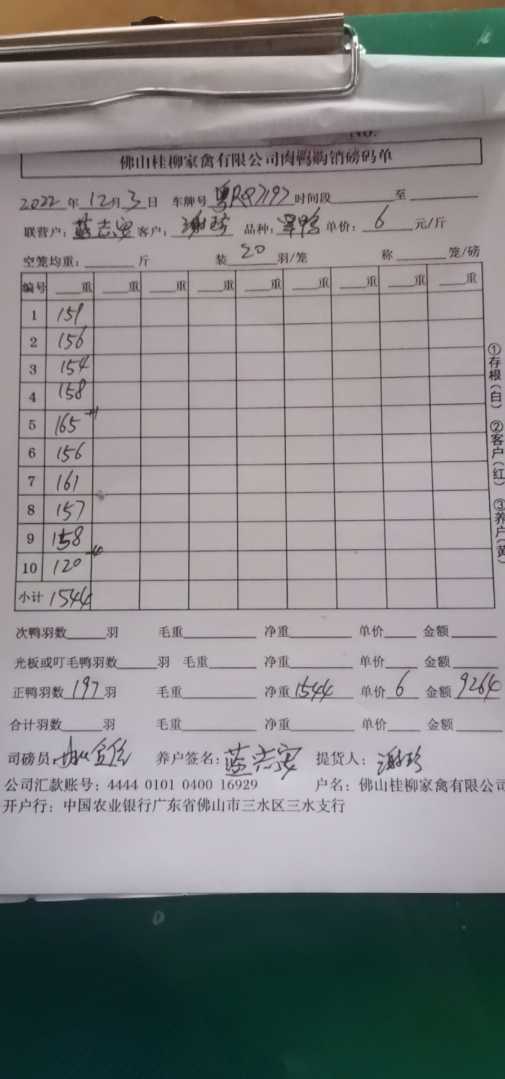 No.
佛山桂柳家禽有限公司肉鸭购销磅码单
2022年12月3日 车牌号 时间段 至
联营户: 蓝志 客户: 谢珍 品种: 单价: 6 元/斤
空笼均重: 斤 装 20 羽/笼 称 笼/磅
编号 重 重 重 重 重 重 重 重 重
1 159
2 156
3 154
4 158
5 165
6 156
7 161
8 157
9 158
10 120
小计 1544
次鸭羽数 羽 毛重 净重 单价 金额
光板或叮毛鸭羽数 羽 毛重 净重 单价 金额
正鸭羽数 197 羽 毛重 净重 1544 单价 6 金额 9264
合计羽数 羽 毛重 净重 单价 金额
司磅员: 养户签名: 蓝志 提货人: 谢珍
公司汇款账号: 4444 0101 0400 16929 户名: 佛山桂柳家禽有限公司
开户行: 中国农业银行广东省佛山市三水区三水支行
①存根(白) ②客户(红) ③养户(黄)